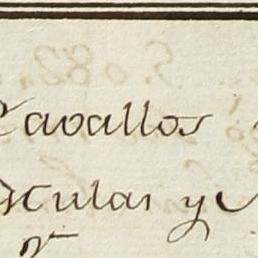 Cavallos
sculas y